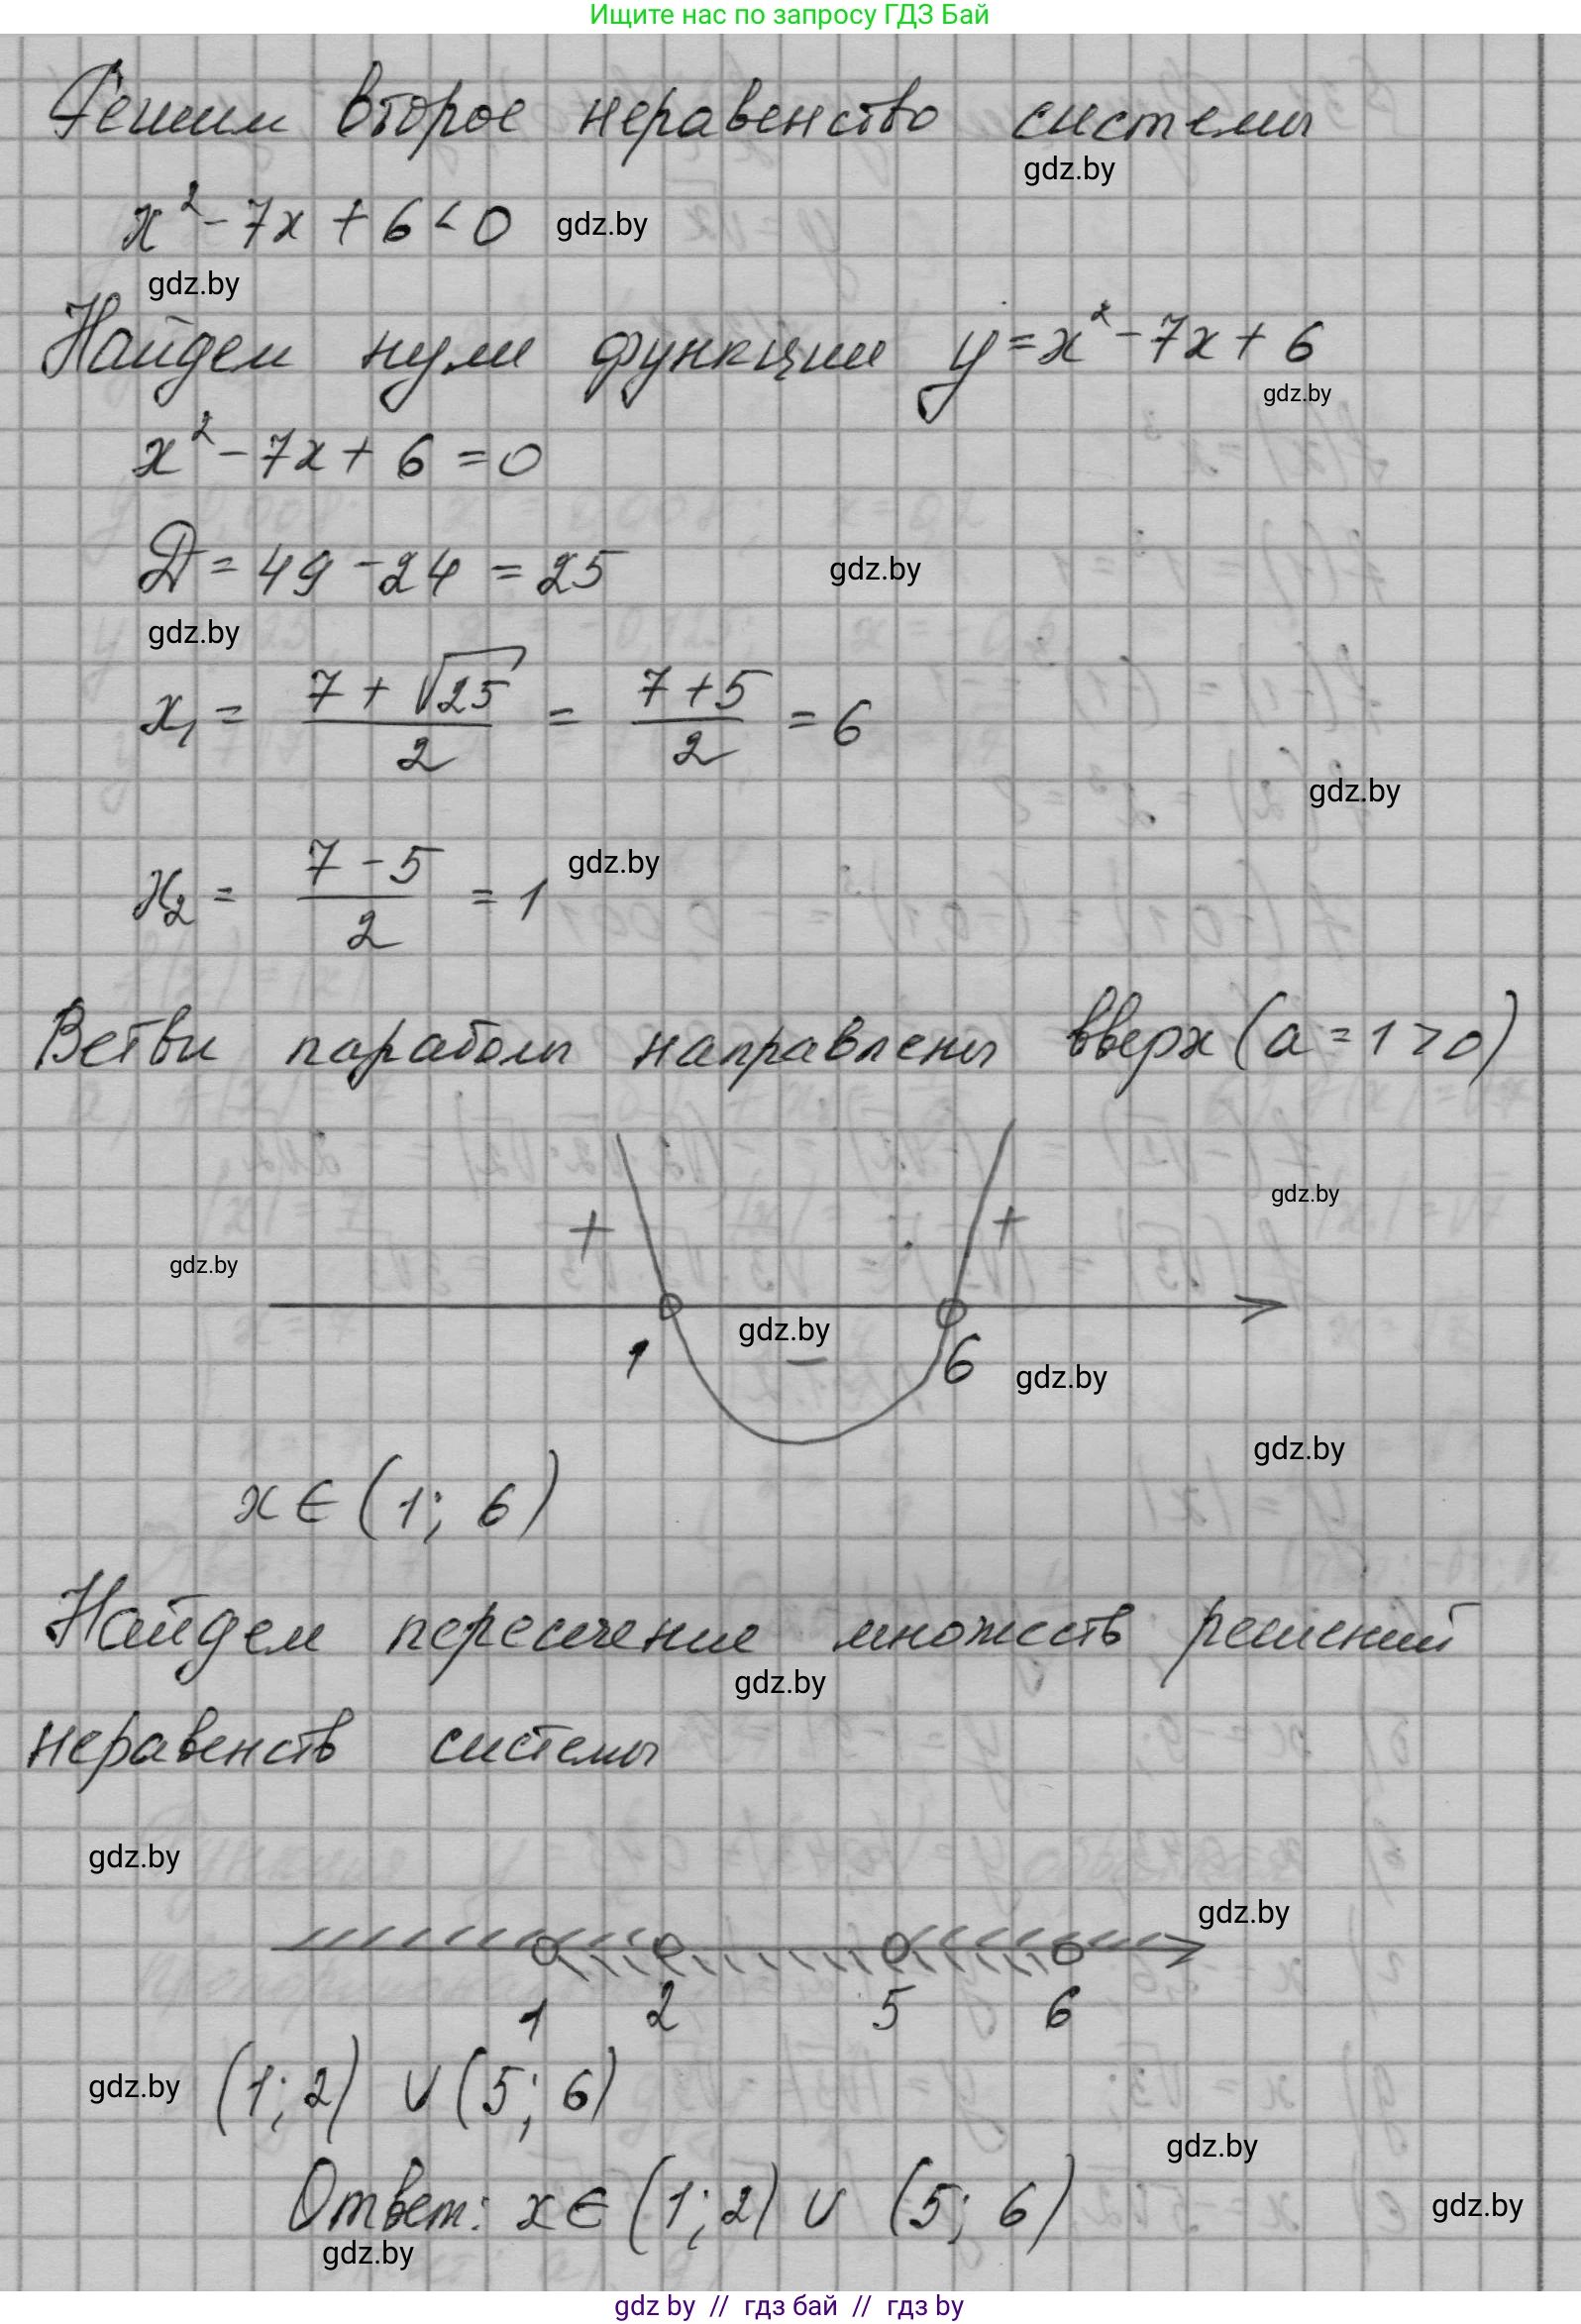 Ищите нас по запросу ГДЗ Бай
Решим второе неравенство системы
gdz.by
x² - 7x + 6 < 0 gdz.by
gdz.by
Найдем нули функции y = x² - 7x + 6
gdz.by
x² - 7x + 6 = 0
D = 49 - 24 = 25 gdz.by
gdz.by
x₁ = (7 + √25)/2 = (7 + 5)/2 = 6
gdz.by
x₂ = (7 - 5)/2 = 1 gdz.by
Ветви параболы направлены вверх (a = 1 > 0)
gdz.by
+ +
gdz.by
gdz.by
1 − 6 gdz.by
gdz.by
x ∈ (1; 6)
Найдем пересечение множеств решений
gdz.by
неравенств системы
gdz.by
gdz.by
1 2 5 6
gdz.by (1; 2) ∪ (5; 6)
gdz.by
Ответ: x ∈ (1; 2) ∪ (5; 6) gdz.by
gdz.by
gdz by // гдз бай // гдз by